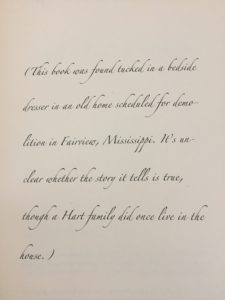 (This book was found tucked in a bedside
dresser in an old home scheduled for demo-
lition in Fairview, Mississippi. It's un-
clear whether the story it tells is true,
though a Hart family did once live in the
house.)